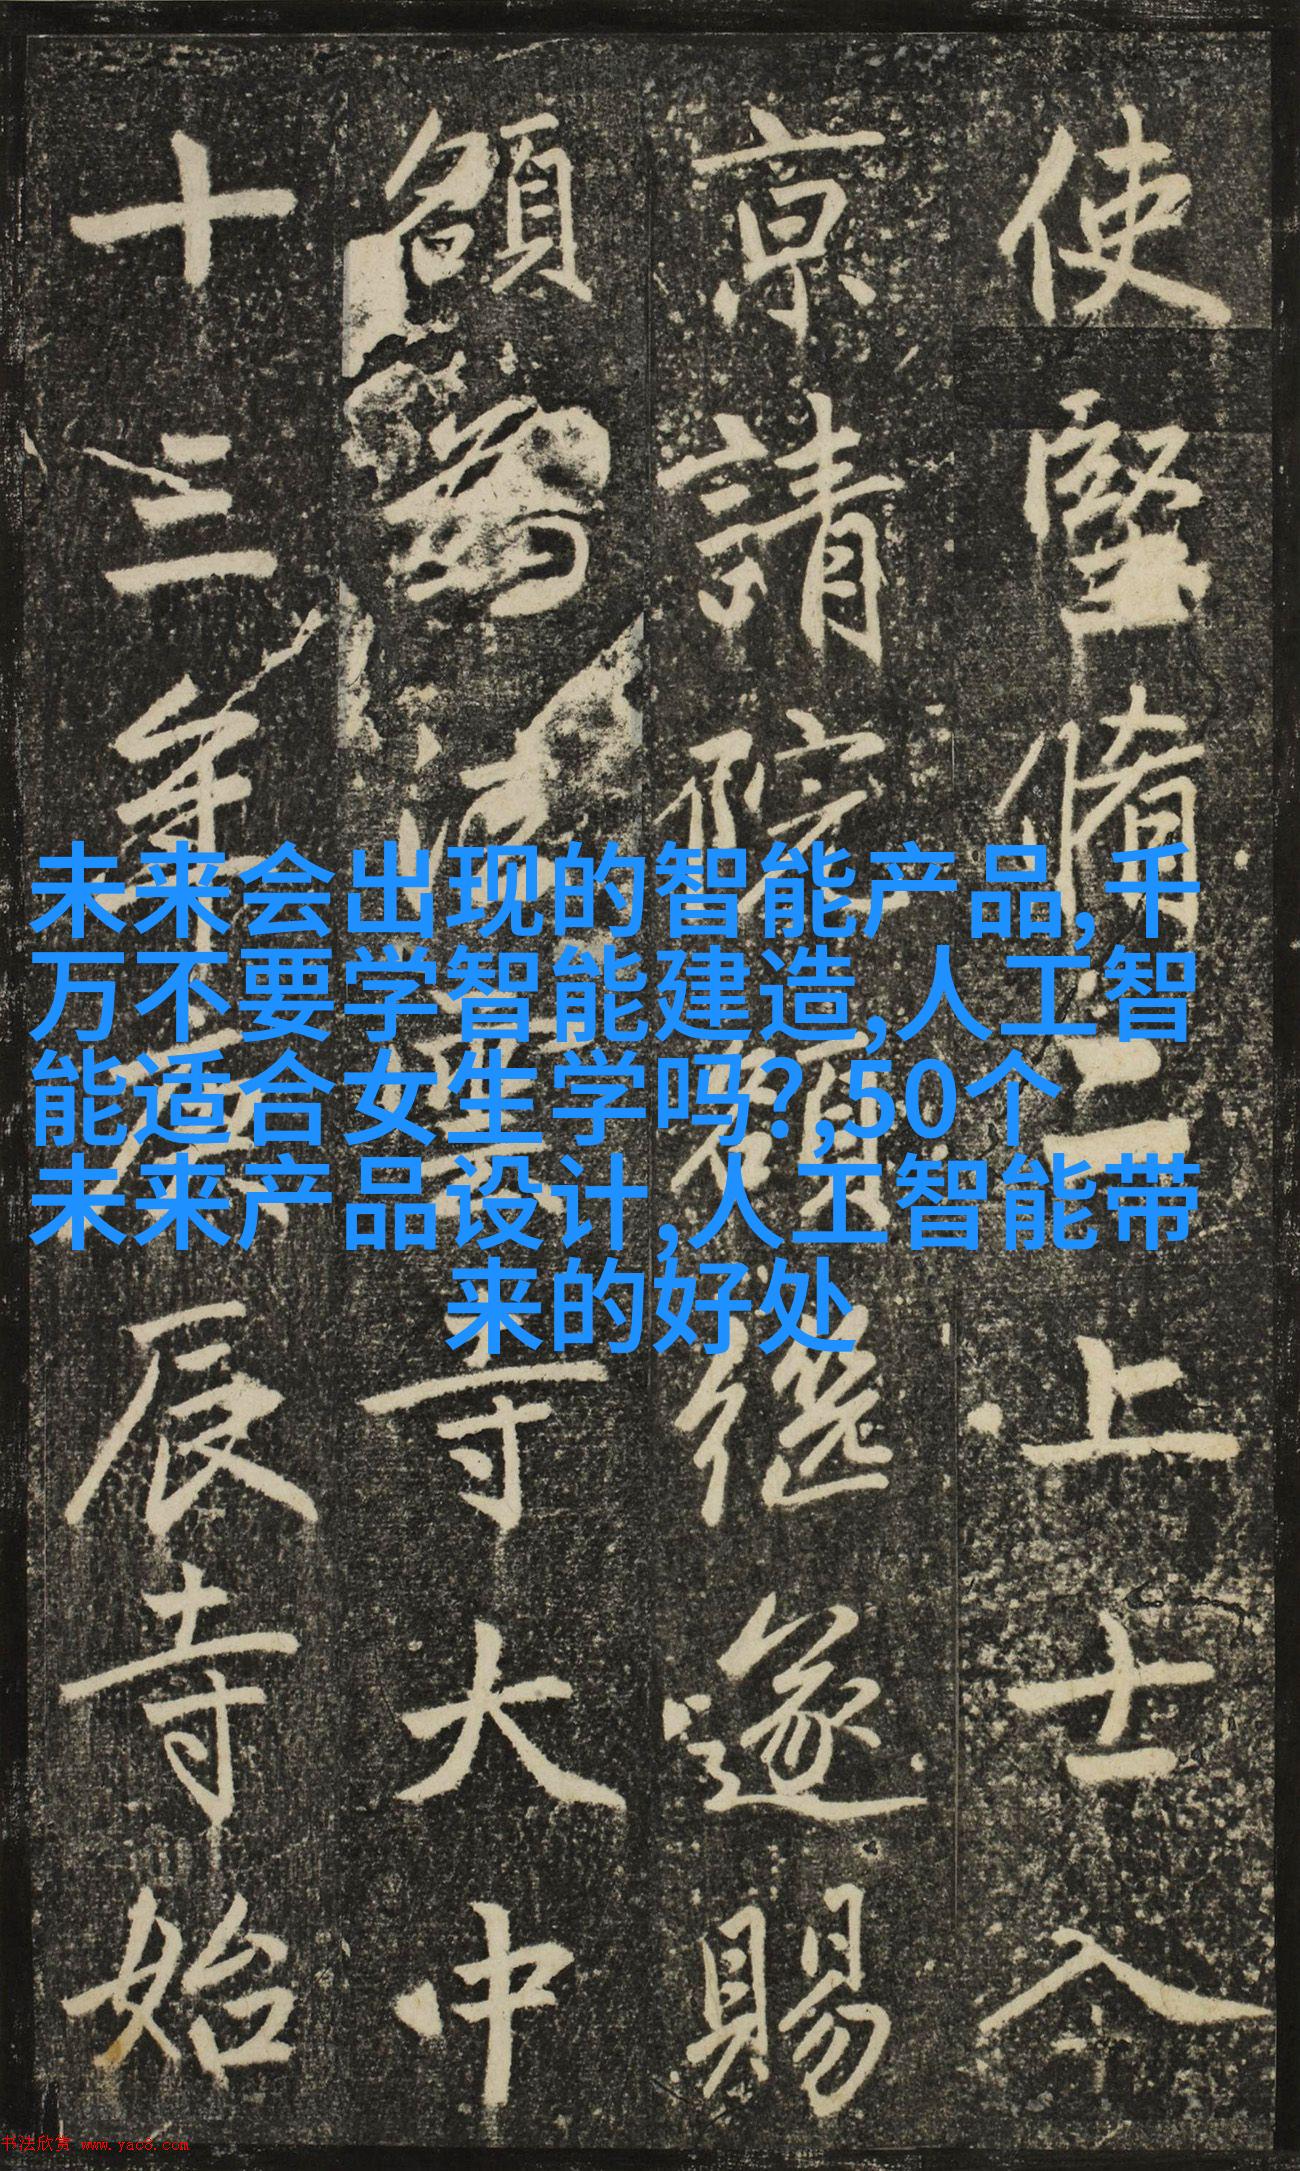 使堅脩二上士入
京請院額継遂賜
額為寺大中
十三年庚辰寺始
未来会出现的智能产品,千
万不要学智能建造,人工智
能适合女生学吗?,50个
未来产品设计,人工智能带
来的好处
书法欣赏 www.yac8.com